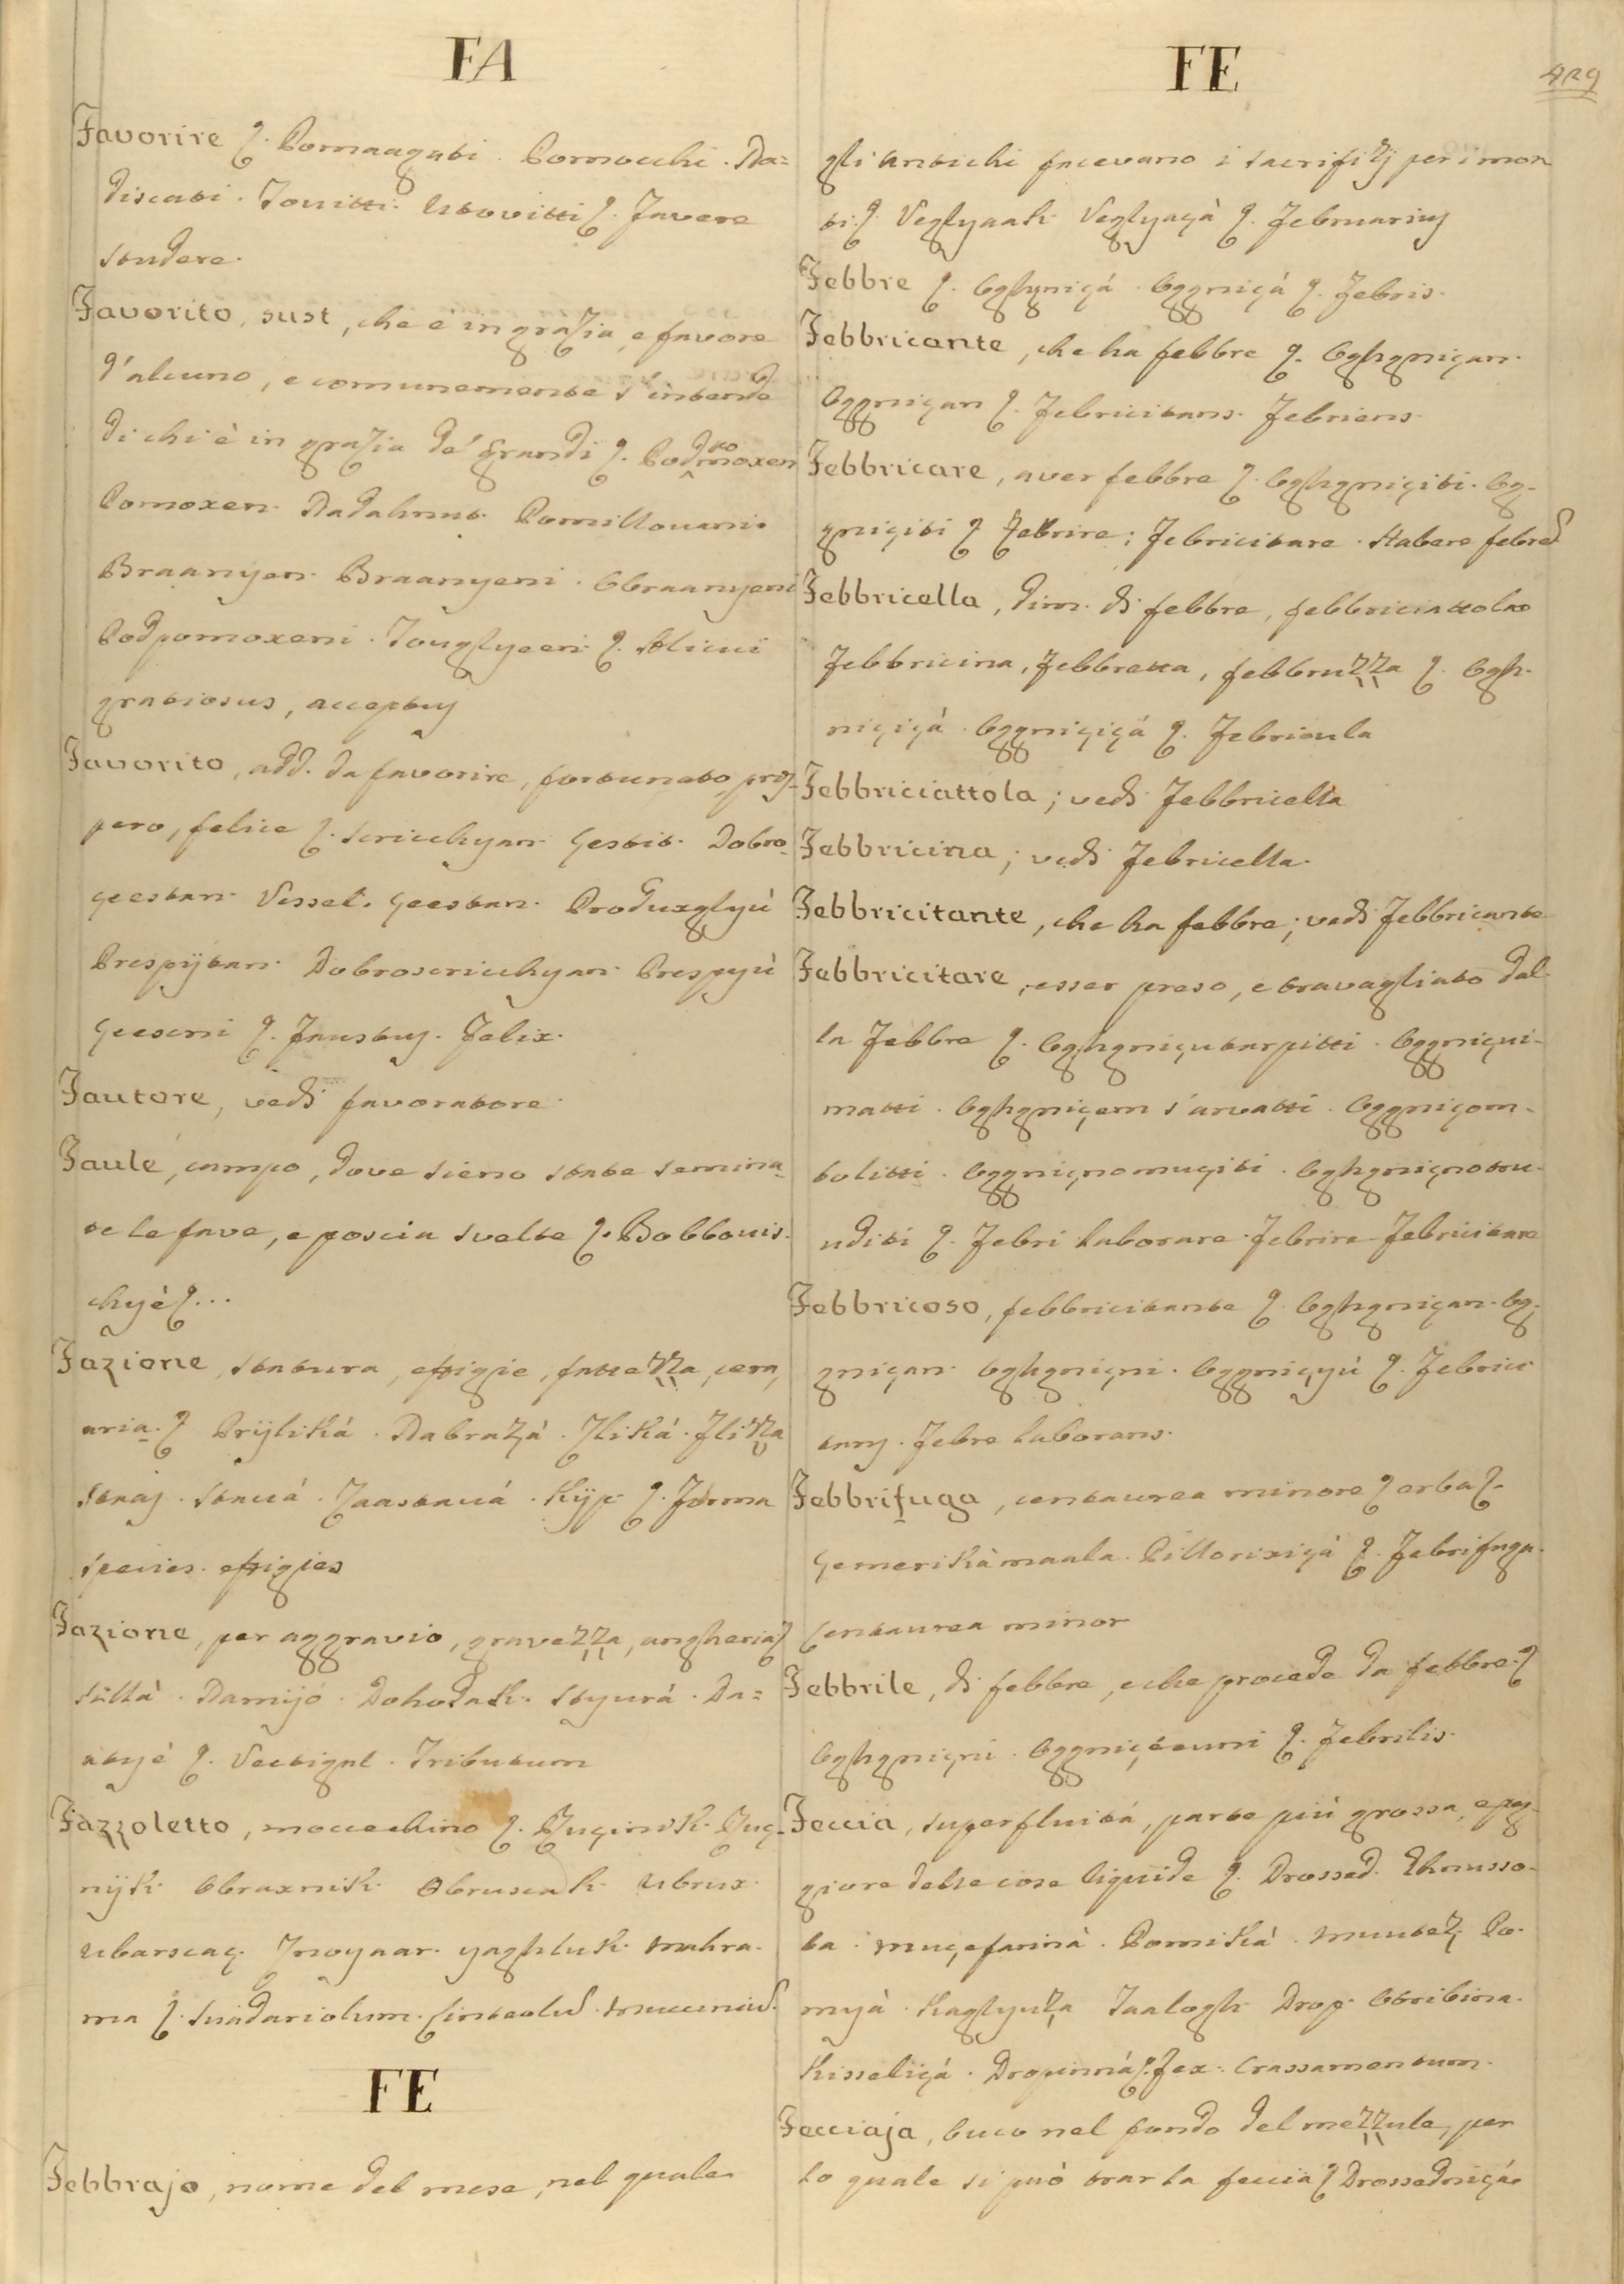 FA
Favorire ꝯ. Pomaagati. Pomocchi. Na=
discati. Jovitti. Ustovitti ꝯ. Favere
studere.
Favorito, sust, che é in grazia, e favore
d'alcuno, e comunemente s'intende
di chi è in grazia dé grandi ꝯ. Podpomoxen
Pomoxen. Nadahnut. Pomillovani.
Braanyen. Braanyeni. Obraanyeni
Podpomoxeni. Touglyeen. ꝯ. Alicui
gratiosus, acceptus
Favorito, add. da favorire, fortunato, pros-
pero, felice ꝯ. Sericchyan. Çestit. Dobro-
çeestan. Vessel. Çeestan. Produxglyú
Prespÿtan. Dobrosericchyan. Prespyú
Çeesteni ꝯ. Faustus. Felix.
Fautore, vedi favoratore.
Faulé, campo, dove sieno state semina-
te le fave, e poscia svelte ꝯ. Bobbovis.
chyé ꝯ...
Fazione, statura, effigie, fattezza, cera,
aria. ꝯ Prÿliká. Nabrazá. Zliká. Flizza
Staaj. Stauá. Zaastauá. Kÿp. ꝯ. Forma
species. effigies
Fazione, per aggravio, gravezza, angheria ꝯ
Sillá. Namijó. Dohodak. Styurá. Da=
atyé ꝯ. Vectigal. Tributum
Fazzoletto, moccichino ꝯ. Ruçinik. Ruç-
nÿk. Obraxnik. Obruscak. Ubrux.
Ubarscaç. Znoynar. yaghluk. mahra.
ma ꝯ. Sudariolum. Linteolum. muccinium.
FE
Febbrajo, nome del mese, nel quale
FE
429
gli antichi facevano i sacrifizj per i mor
ti. ꝯ Veglyaak. Veglyaçá ꝯ. Februarius
Febbre ꝯ. Oghgniçá. Oggniçá ꝯ. Febris.
Febbricante, che ha febbre ꝯ. Oghgniçan.
Oggniçan ꝯ. Febricitans. Febriens.
Febbricare, aver febbre ꝯ. Oghgniçiti. Og-
gniçiti ꝯ Febrire; Febricitare. Habere febrem
Febbricella, dim. di febbre, febbriciattola
Febbricina, Febbretta, febbruzza ꝯ. Ogh.
niçiçá. Oggniçiçá ꝯ. Febricula
Febbriciattola; vedi Febbricella
Febbricina; vedi Febricella.
Febbricitante, che ha febbre; vedi Febbricante
Febbricitare, esser preso, e travagliato dal-
la Febbre ꝯ. Oghgniçutarpitti. Oggniçui-
matti. Oghgniçem s'arvatti. Oggniçom-
bolitti. Oggniçnomuçiti. Oghgniçnotru-
uditi ꝯ. Febri laborare. Febrire Febricitare
Febbricoso, febbricitante ꝯ. Oghgniçan. Og-
gniçan. Oghgniçni. Oggniçyú ꝯ. Febrici
tans. Febre laborans.
Febbrifuga, centaurea minore ꝯ erba ꝯ.
Çemerikámaala. Pillorixiçá ꝯ. Febrifuga.
Centaurea minor
Febbrile, di febbre, e che procede da febbre. ꝯ
Oghgniçni. Oggniçeeuni ꝯ. Febrilis.
Feccia, superfluitá, parte piú grossa, e peg-
giore delle cose liquide ꝯ. Drossed. Ehmusso-
ta. muçefariná. Pomiká. muutez. Po-
myá. Kaglyuza Taalogh. Drop. Otribina.
Kisseliçá. Dropinná ꝯ. Fex. Crassamentum.
Fecciaja, buco nel fondo del mezzule, per
lo quale si puó trar la feccia ꝯ Drossedniçá.